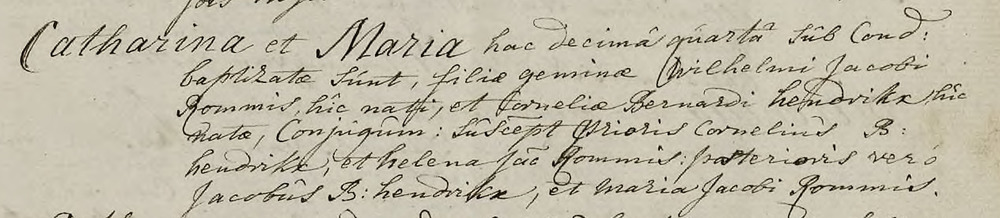 Catharina et Maria hac decimâ quartâ sub Cond:
baptizatæ sunt, filiæ geminæ Wilhelmi Jacobi
Rommis, hic nati, et Corneliæ Bernardi hendrikx, hic
natæ, Conjugum: suscept prioris Cornelius B:
hendrikx, et helena Jac Rommis: posterioris vero
Jacobus B: hendrikx, et Maria Jacobi Rommis.